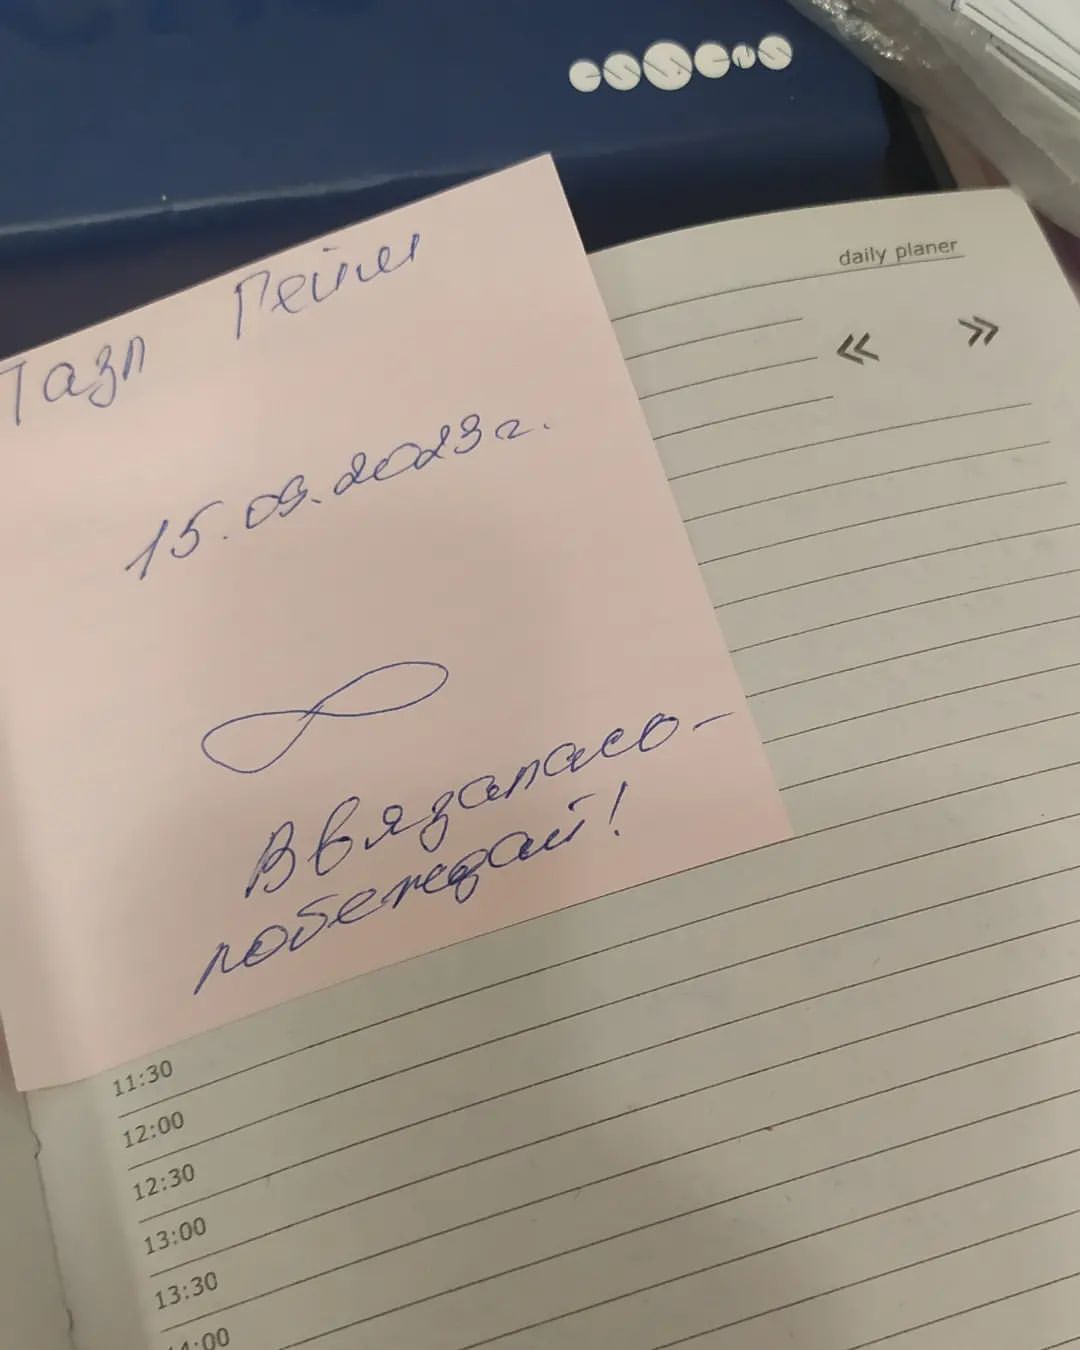 essens
daily planer
Пазл Рейгы
15.09.2023г.
Ввязалась-
побеждай!
11:30
12:00
12:30
13:00
13:30
14:00